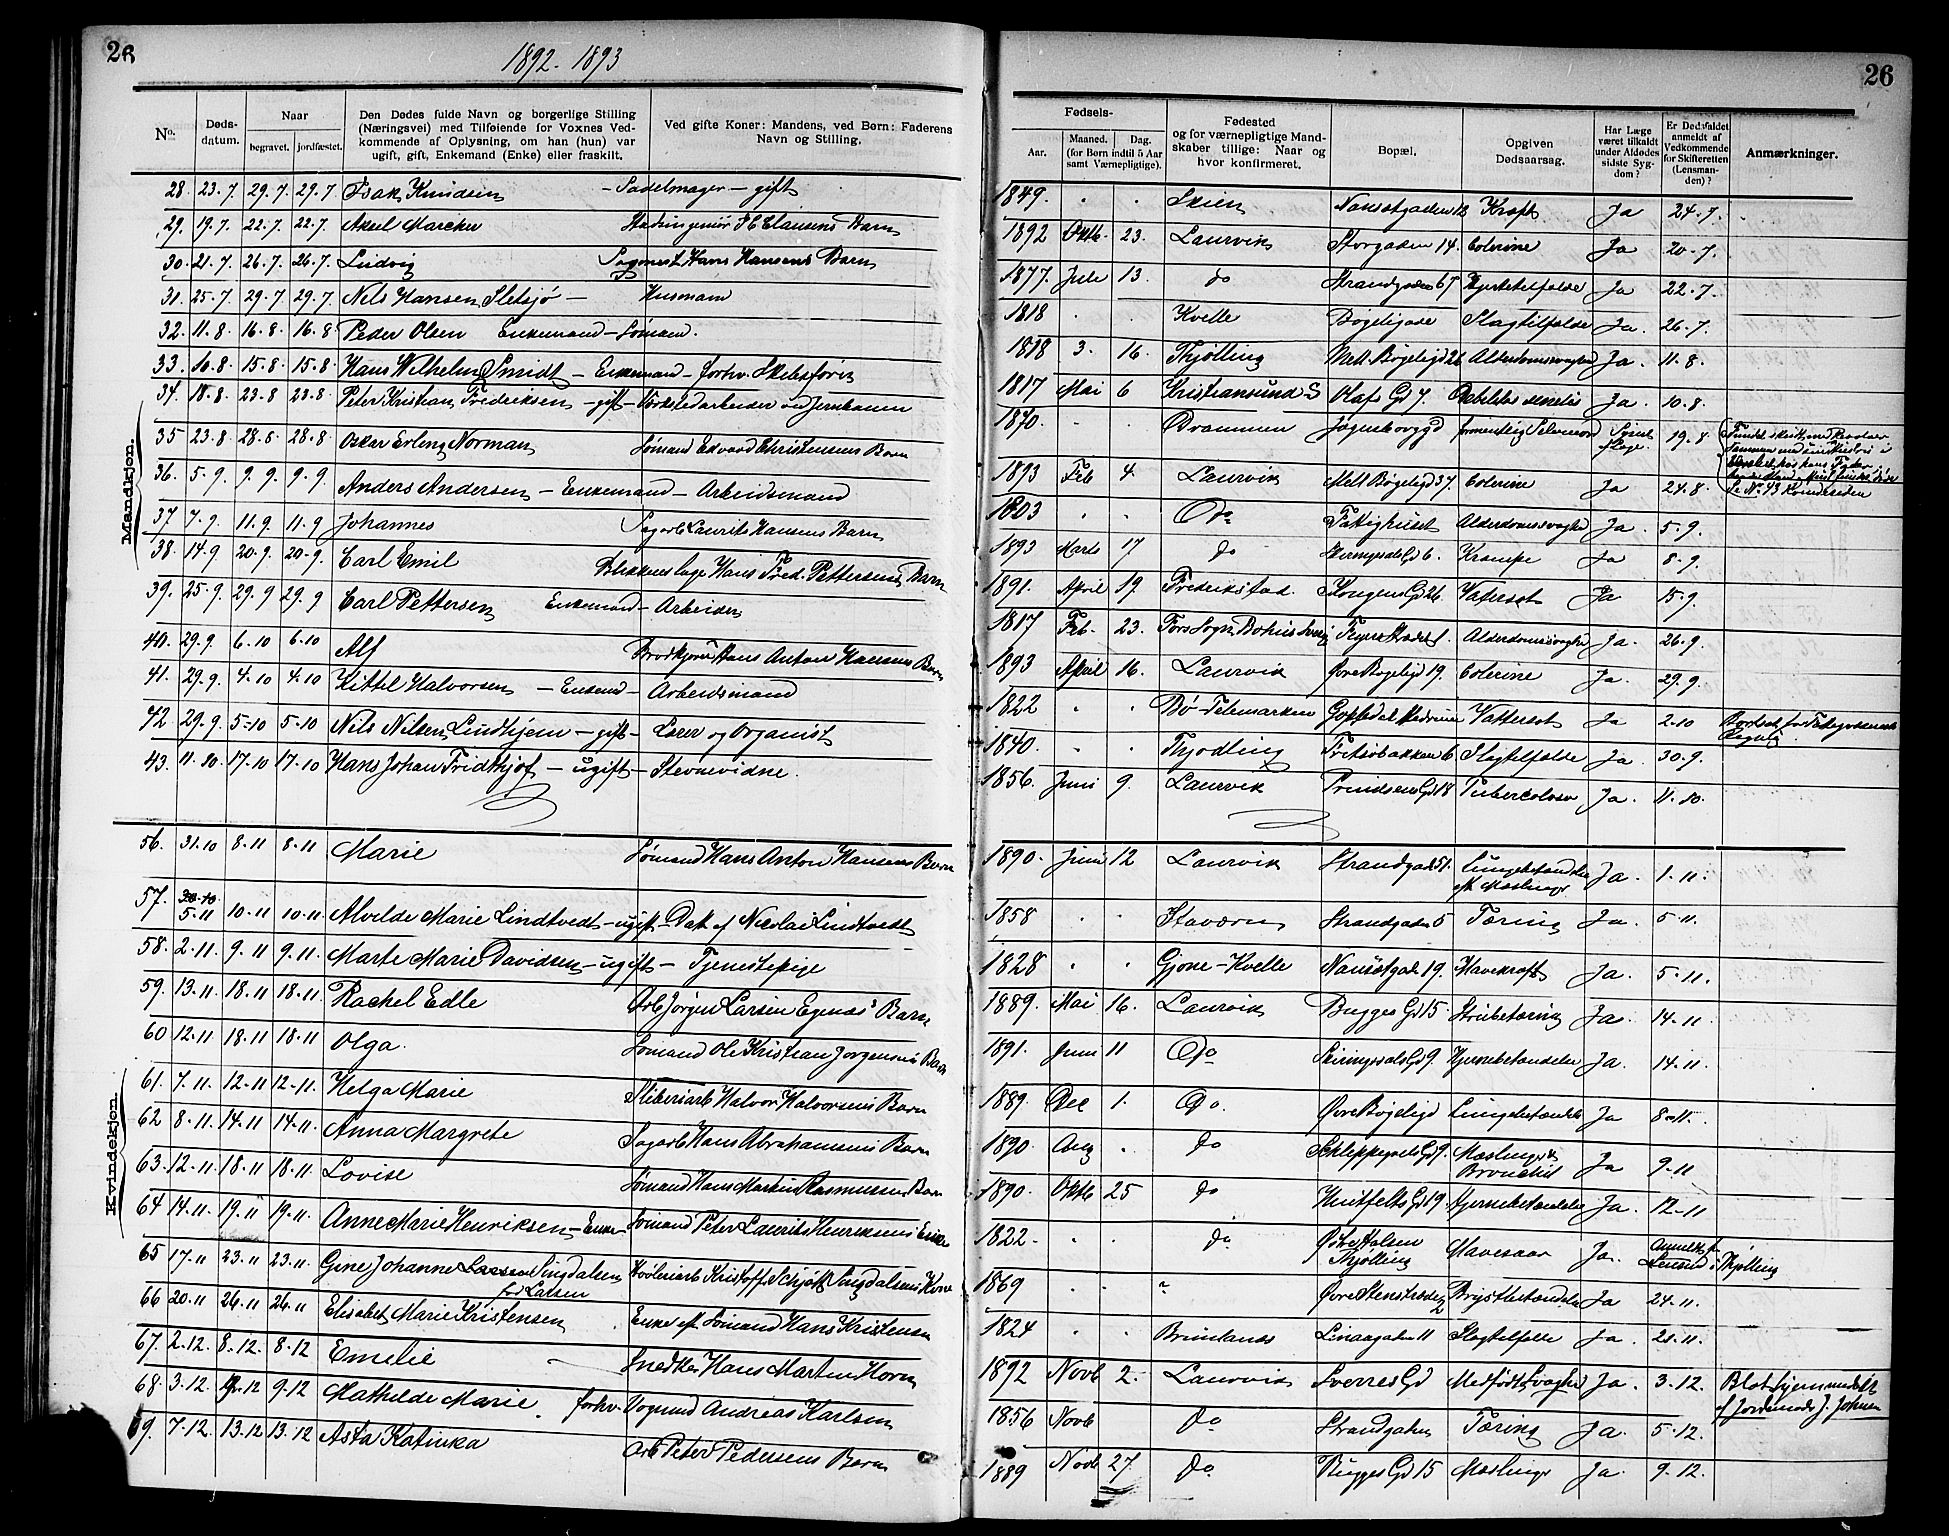 26
1892 - 1893
No.
Døds-
datum.
Naar
begravet.
jordfæstet.
Den Dødes fulde Navn og borgerlige Stilling
(Næringsvei) med Tilføiende for Voxnes Ved-
kommende af Oplysning, om han (hun) var
ugift, gift, Enkemand (Enke) eller fraskilt.
Ved gifte Koner: Mandens, ved Børn: Faderens
Navn og Stilling.
Mandkjøn.
28 23.7. 29.7. 29.7. Isak Knudsen - Sadelmager - gift
29. 19.7. 22.7. 22.7. Aksel Marcker Stadsingeniør F C Clausens Barn
30. 21.7. 26.7. 26.7. Ludvig Hans Hansens Barn
31. 25.7. 29.7. 29.7. Nils Hansen Sletsjø - Husmand
32. 11.8. 16.8. 16.8 Peder Olsen Enkemand - Sømand.
33. 10.8. 15.8. 15.8. Hans Wilhelm Smidt - Enkemand - forhv. Skibsfører
34. 18.8. 23.8 23.8. Peter Kristian Fredriksen - gift - Værkstedarbeider ved Jernbanen
35 23.8 28.8. 28.8 Oskar Erling Norman Sømand Edvard Christensens Barn
36. 5.9. 9.9. 9.9. Anders Andersen - Enkemand - Arbeidsmand
37. 7.9. 11.9. 11.9 Johannes Sagarb Laurits Hansens Barn
38. 14.9 20.9. 20.9. Carl Emil Blikkenslage Hans Fred. Pettersens Barn
39. 25.9. 29.9 29.9 Carl Pettersen Enkemand - Arbeider
40. 29.9. 6.10 6.10 Alf Brodkjører Hans Anton Hansens Barn
41. 29.9. 4.10 4.10 Kittil Halvorsen - Enkem - Arbeidsmand
42 29.9. 5-10 5-10 Nils Nilsen Lindhjem - gift - Lærer og Organist
43. 11.10 17.10 17.10 Hans Johan Fridthjof - ugift - Stevnevidne.
Kvindekjøn.
56. 31.10 8-11 8-11 Marie Sømand Hans Anton Hansens Barn
57. 30.10
5-11 10-11 10-11 Alvilde Marie Lindtvedt - ugift - Datt. af Nicolai Lindtvedt
58. 2.11. 9.11 9.11. Marte Marie Davidsen - ugift - Tjenestepige
59. 13.11. 18.11 18.11. Rachel Edle Arb Jørgen Larsen Egenæs' Barn
60 12.11. 18.11 18.11 Olga. Sømand Ole Kristian Jørgensens Barn
61. 7.11. 12-11 12-11. Helga Marie Halvor Halvorsens Barn
62 8.11. 14-11 14-11. Anna Margrete Sagarb Hans Abrahamsens Barn
63. 12.11. 18.11 18.11. Lovise Sømand Hans Martin Rasmussens Barn
64 14.11. 19.11 19.11. Anne Marie Henriksen - Enke - Sømand Peter Laurits Henriksens Enke
65 17.11 23.11 23.11. Gine Johanne Larsen Singdalsen
fød Larsen Kristoffer Schjøtt Singdalsens Kone
66 20.11 26.11 26.11 Elisabet Marie Kristensen Enke eft Sømand Hans Kristensen
67. 2.12. 8.12. 8.12 Emelie Snedker Hans Martin Horn
68. 3.12 9.12 9.12 Mathilde Marie forhv. Vognmd Andreas Karlsen
69. 7.12. 13.12 13.12 Asta Katinka Arb Peter Pedersens Barn
26
Fødsels-
Aar.
Maaned.
Dag.
(for Børn indtil 5 Aar
samt Værnepligtige).
Fødested
og for værnepligtige Mand-
skaber tillige: Naar og
hvor konfirmeret.
Bopæl.
Opgiven
Dødsaarsag.
Har Læge
været tilkaldt
under Afdødes
sidste Syg-
dom?
Er Dødsfaldet
anmeldt af
Vedkommende
for Skifteretten
(Lensman-
den)?
Anmærkninger.
1849. . . Skien Nansetgaden 12 Kræft Ja 24-7.
1892 Oktb. 23. Laurvik Storgaden 14. Colerine Ja 20-7.
1877. Jule 13. do Strandgaden 67 Hjertetilfælde Ja 22-7.
1818 . . Kvelle Bøgeligade Slagtilfælde Ja. 26-7.
1818 3. 16. Thjølling Mell. Bøgeligd 26 Alderdomssvaghed Ja. 11.8.
1817 Mai 6 Kristiansund S Olafs Gd 7. Ja. 10.8.
1870. . . Drammen formentlig Selvmord 19.8 Fundet skudt med Revolver
Se No 43 Kvindesiden
1893 Feb 4. Laurvik Mell Bøgeligd 37. Colerine Ja 24.8.
1803 . . Do Fattighuset Alderdomssvaghed Ja. 5-9.
1893 Marts 17 do Skiringsals Gd 6. Krampe Ja 8-9.
1891. April 19. Fredrikstad. Kongens Gd 26. Vatersot Ja 15-9.
1817 Feb. 23. Fors Sogn, Bohus Alderdomssvaghed Ja. 26-9.
1893 April 16. Laurvik Øvre Bøgeligd 19. Colerine Ja. 29.9.
1822 . . Bø - Telemarken Vattersot Ja 2-10
1840. . . Thjødling Fritzøbakken 6 Slagtilfælde Ja. 30.9.
1856. Juni 9. Laurvik Prindsens Gd 18 Tuberculose Ja. 11.10.
1890. Juni 12 Laurvik Strandgad 51. Lungebetændelse
eft Mæslinger Ja. 1.11.
1858 . . Staværn Strandgaden 5 Tæring Ja. 5-11.
1828 . . Gjone - Kvelle Nansetgad 19. Mavekræft Ja. 5-11.
1889. Mai 16. Laurvik Bugges Gd 15 Strubetæring Ja. 14-11.
1891. Juni 11 Do Skiringsals Gd 9. Hjernebetændelse Ja. 14.11.
1889. Dec 1. Do. Øvre Bøgeligd Lungebetændelse Ja 8-11.
1890. Aug . do Schleppegrels Gd 9. Mæslinger &
Bronchit Ja 9-11
1890. Oktb 25 do Huitfelts Gd 19. Hjernebetændelse Ja. 12-11
1822. . . do Østre Halsen
Thjølling Mavesaar Ja. Anmeldt f.
Lensmd i Thjølling
1869 . . " Brystbetændelse Ja 24-11.
1824 . . Brunlanæs Linaagaden 11 Slagtilfælde Ja. 21.11.
1892 Novb 2. Laurvik Sverres Gd Medfødt Svaghed Ja. 3.12. Blot hjemmedøbt
af Jordemoder J. Johnsen
1856 Novb do Strandgaden Tæring Ja. 5-12.
1889 Novb 27. do Bugges Gd 15 Mæslinger Ja. 9.12.